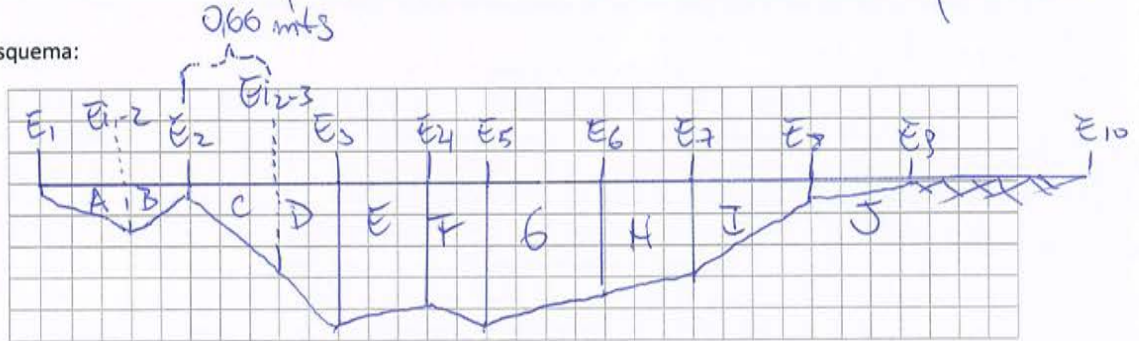 0,66 mts
squema:
E1 Ei1-2 E2 Ei2-3 E3 E4 E5 E6 E7 E8 E9 E10
A B C D E F G H I J